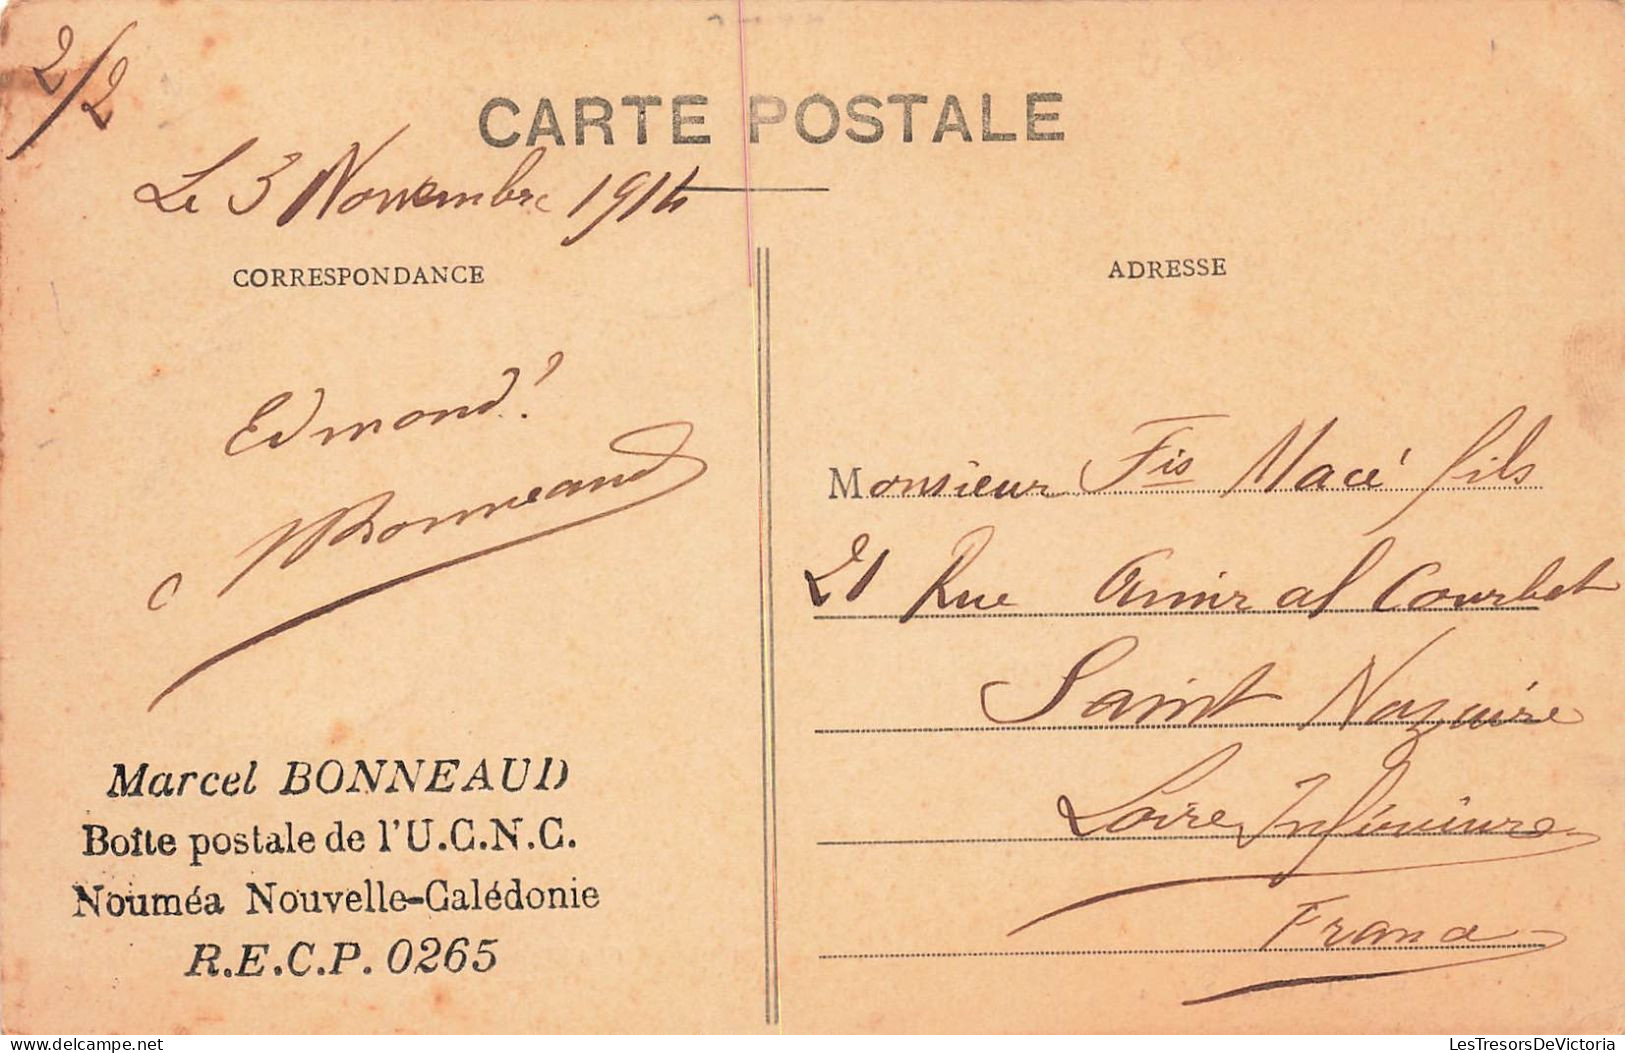 2/2
CARTE POSTALE
Le 3 Novembre 1914
CORRESPONDANCE
Edmond!
Bonneaud
Marcel BONNEAUD
Boîte postale de l'U.C.N.C.
Nouméa Nouvelle-Calédonie
R.E.C.P. 0265
ADRESSE
Monsieur Fis Macé fils
21 Rue Amiral Courbet
Saint Nazaire
Loire Inférieure
France
LesTresorsDeVictoria